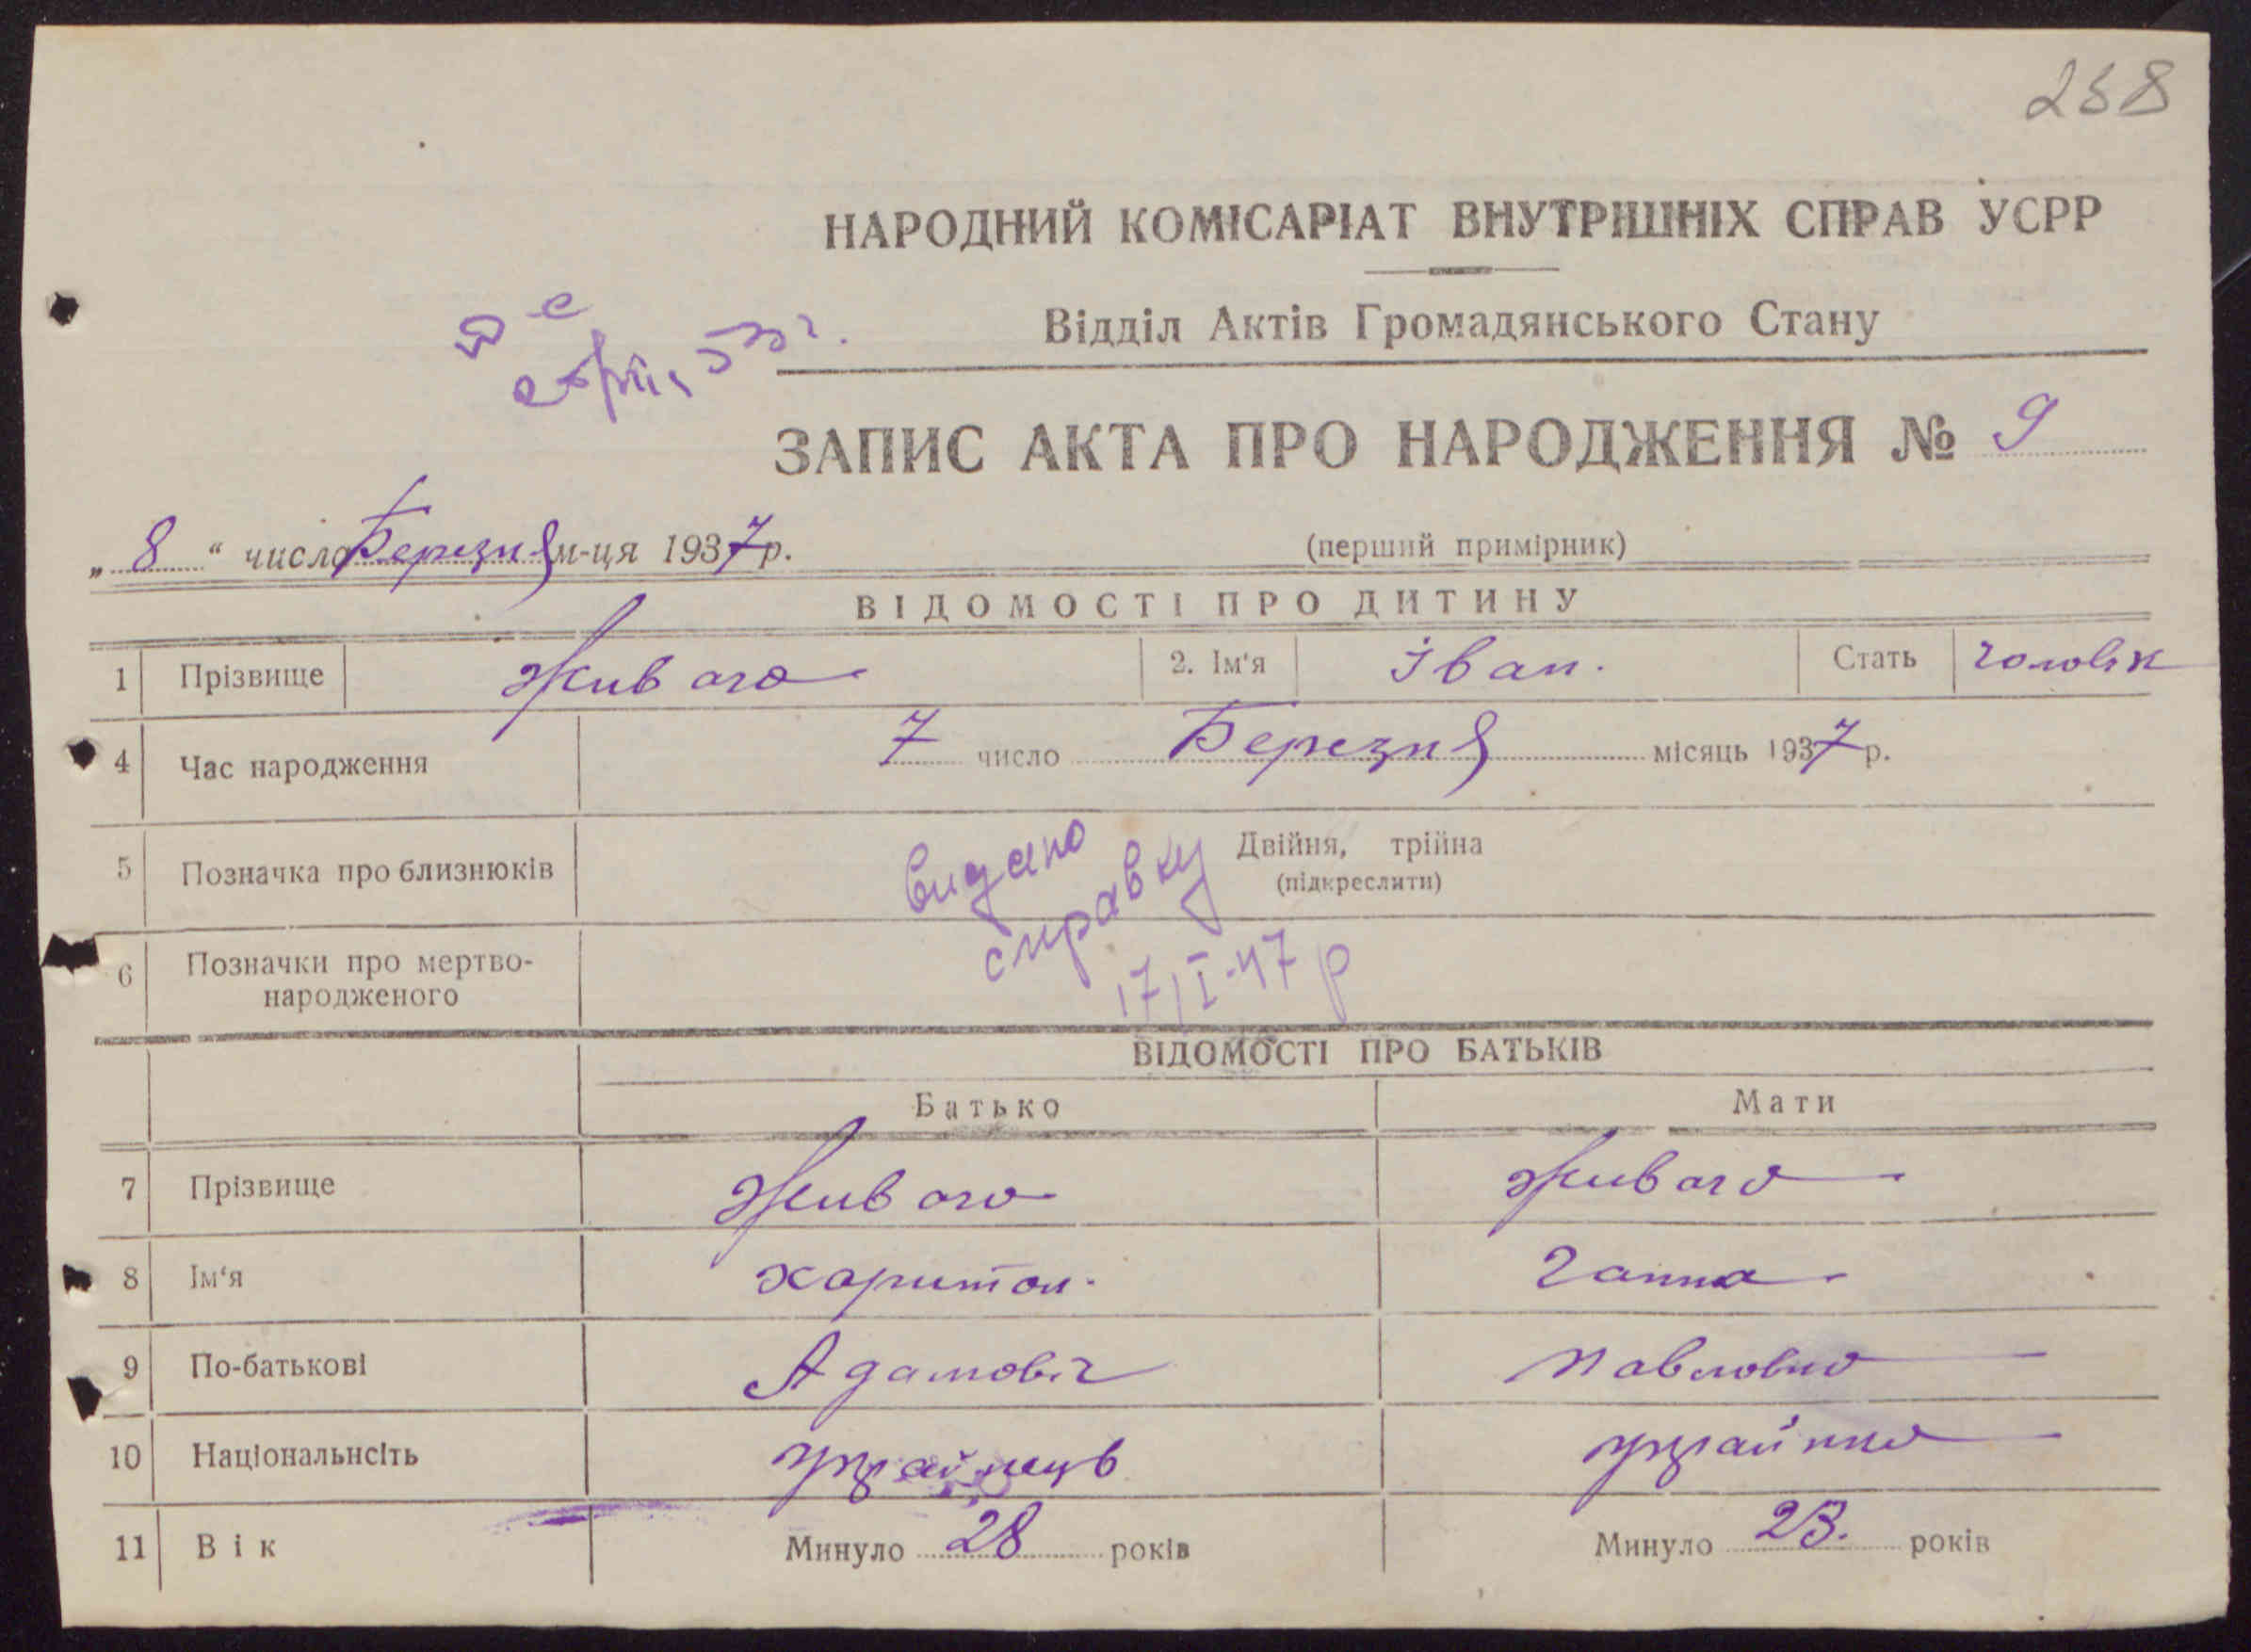 258
НАРОДНИЙ КОМІСАРІАТ ВНУТРІШНІХ СПРАВ УСРР
Відділ Актів Громадянського Стану
ЗАПИС АКТА ПРО НАРОДЖЕННЯ № 9
„ 8 “ число Березня м-ця 1937 р.
(перший примірник)
ВІДОМОСТІ ПРО ДИТИНУ
1 Прізвище Живаго 2. Ім‘я Іван. Стать чоловік
4 Час народження 7 число Березня місяць 1937 р.
5 Позначка про близнюків Двійня, трійна
(підкреслити)
видано
справку
17/I-47 р
6 Позначки про мертво-
народженого
ВІДОМОСТІ ПРО БАТЬКІВ
Батько Мати
7 Прізвище Живаго Живаго
8 Ім‘я Харитон. Ганна
9 По-батькові Адамовіч Павловна
10 Національнсіть Українець Українка
11 Вік Минуло 28 років Минуло 23. років